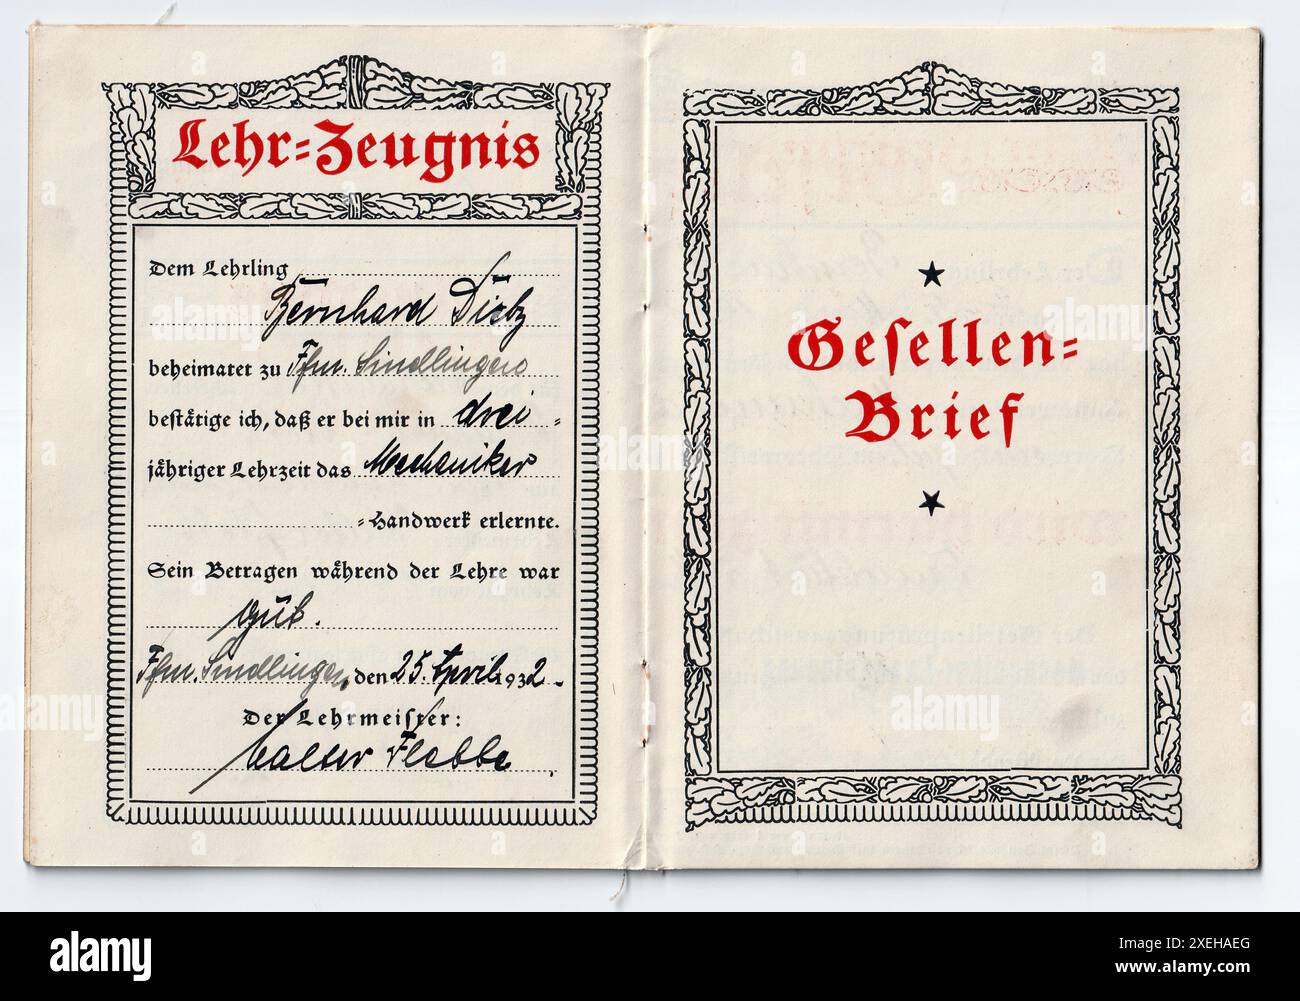 Lehr=Zeugnis
Dem Lehrling
Bernhard Dietz
beheimatet zu Ffm. Sindlingen
bestätige ich, daß er bei mir in drei =
jähriger Lehrzeit das Mechaniker
=Handwerk erlernte.
Sein Betragen während der Lehre war
gut.
Ffm. Sindlingen, den 25. April 1932.
Der Lehrmeister:
Walter
Gesellen=
Brief
alamy
Image ID: 2XEHAEG
www.alamy.com